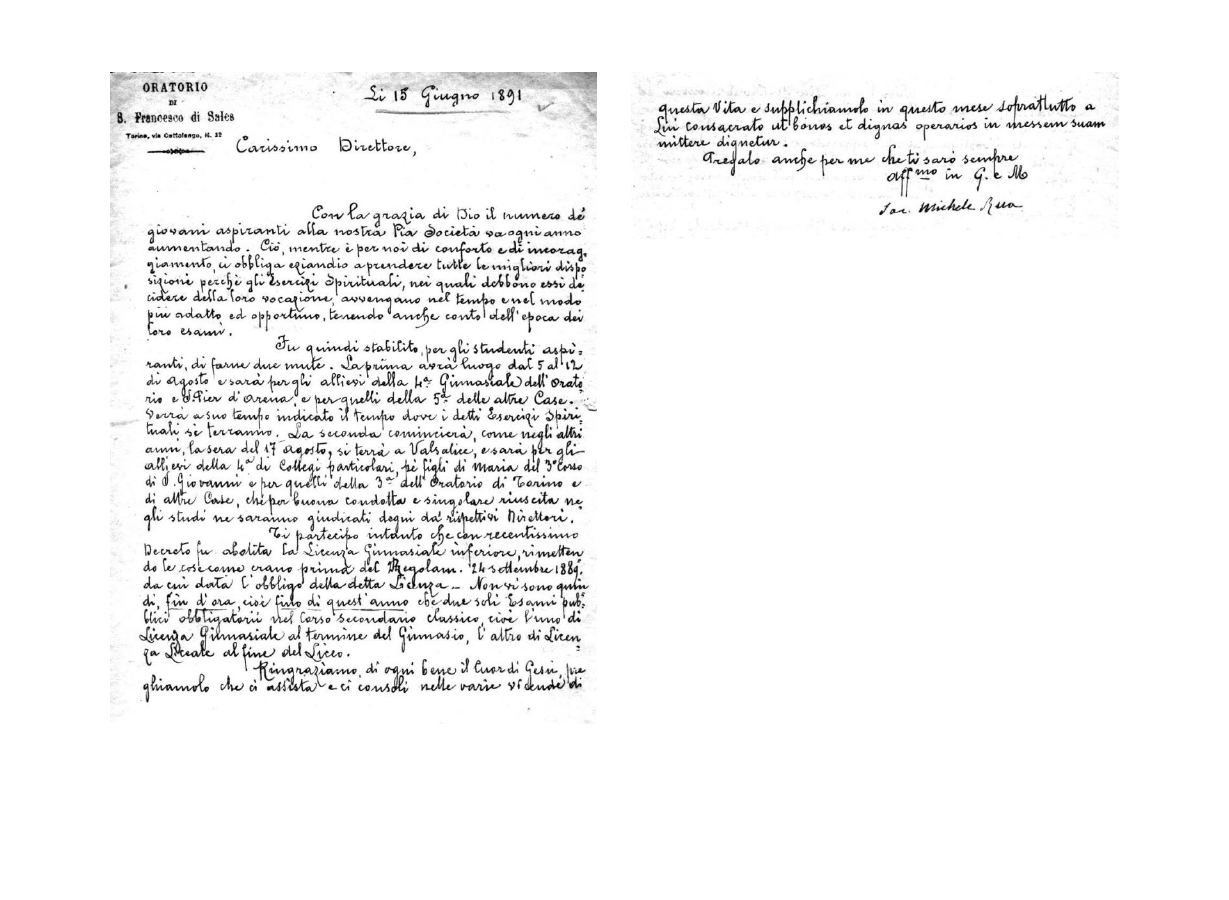 ORATORIO
DI
S. Francesco di Sales
Torino, via Cottolengo, N. 32
Li 15 Giugno 1891
Carissimo Direttore,
Con la grazia di Dio il numero de'
giovani aspiranti alla nostra Pia Società va ogni anno
aumentando. Ciò, mentre è per noi di conforto e di incorag-
giamento, ci obbliga eziandio a prendere tutte le migliori dispo
sizioni perchè gli Esercizi Spirituali, nei quali debbono essi de
cidere della loro vocazione, avvengano nel tempo e nel modo
più adatto ed opportuno, tenendo anche conto dell'epoca dei
loro esami.
Fu quindi stabilito, per gli studenti aspi=
ranti, di farne due mute. La prima avrà luogo dal 5 al 12
di Agosto e sarà per gli allievi della 4a Ginnasiale dell'Orato
rio e S. Pier d'Arena, e per quelli della 5a delle altre Case.
Verrà a suo tempo indicato il tempo dove i detti Esercizi Spiri=
tuali si terranno. La seconda comincierà, come negli altri
anni, la sera del 17 Agosto, si terrà a Valsalice, e sarà per gli
allievi della 4a di Collegi particolari, pei figli di Maria del 3° Corso
di S. Giovanni e per quelli della 3a dell'Oratorio di Torino e
di altre Case, che per buona condotta e singolare riuscita ne
gli studi ne saranno giudicati degni da' rispettivi Direttori.
Ti partecipo intanto che con recentissimo
Decreto fu abolita la Licenza Ginnasiale inferiore, rimetten
do le cose come erano prima del Regolam. 24 settembre 1889.
da cui data l'obbligo della detta Licenza – Non vi sono quin
di, fin d'ora, cioè fino di quest'anno che due soli Esami pub=
blici obbligatorii nel Corso secondario classico, cioè l'uno di
Licenza Ginnasiale al termine del Ginnasio, l'altro di Licen=
za Liceale al fine del Liceo.
Ringraziamo, di ogni bene il Cuor di Gesù, pre
ghiamolo che ci assista e ci consoli nelle varie vicende di
questa Vita e supplichiamolo in questo mese soprattutto a
Lui consacrato ut bonos et dignos operarios in messem suam
mittere dignetur.
Pregalo anche per me che ti sarò sempre
Aff.mo in G. e M
Sac. Michele Rua